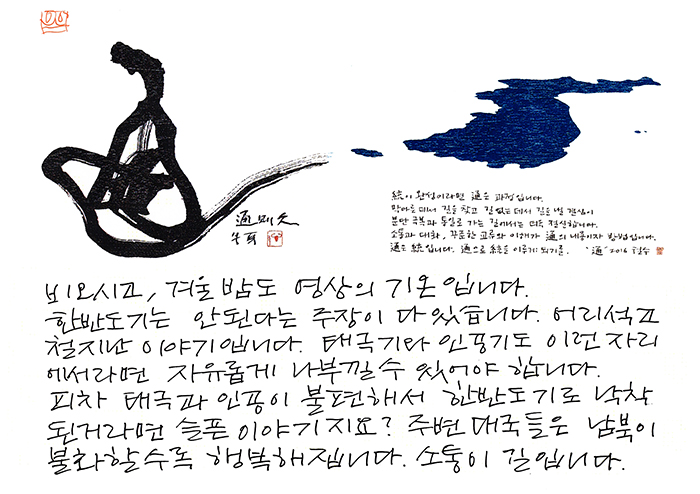 通則久
牛耳
統이 완성이라면 通은 과정입니다.
막아로 미너 길을 찾고 길 없는데서 길을 낼 결심이
분단 극복과 통일로 가는 길에서는 더욱 절실합니다.
소통과 대화, 꾸준한 교류와 이해가 通의 내용이자 방법입니다.
通은 統입니다. 通으로 統을 이루게 되기를. '通' 2016 철수
비오시고, 겨울밤도 영상의 기온입니다.
한반도기는 안된다는 주장이 다 있습니다. 어리석고
철지난 이야기입니다. 태극기와 인공기도 이런 자리
에서라면 자유롭게 나부낄 수 있어야 합니다.
피차 태극과 인공이 불편해서 한반도기로 낙착
된거라면 슬픈 이야기지요? 주변 대국들은 남북이
불화할수록 행복해집니다. 소통이 길입니다.